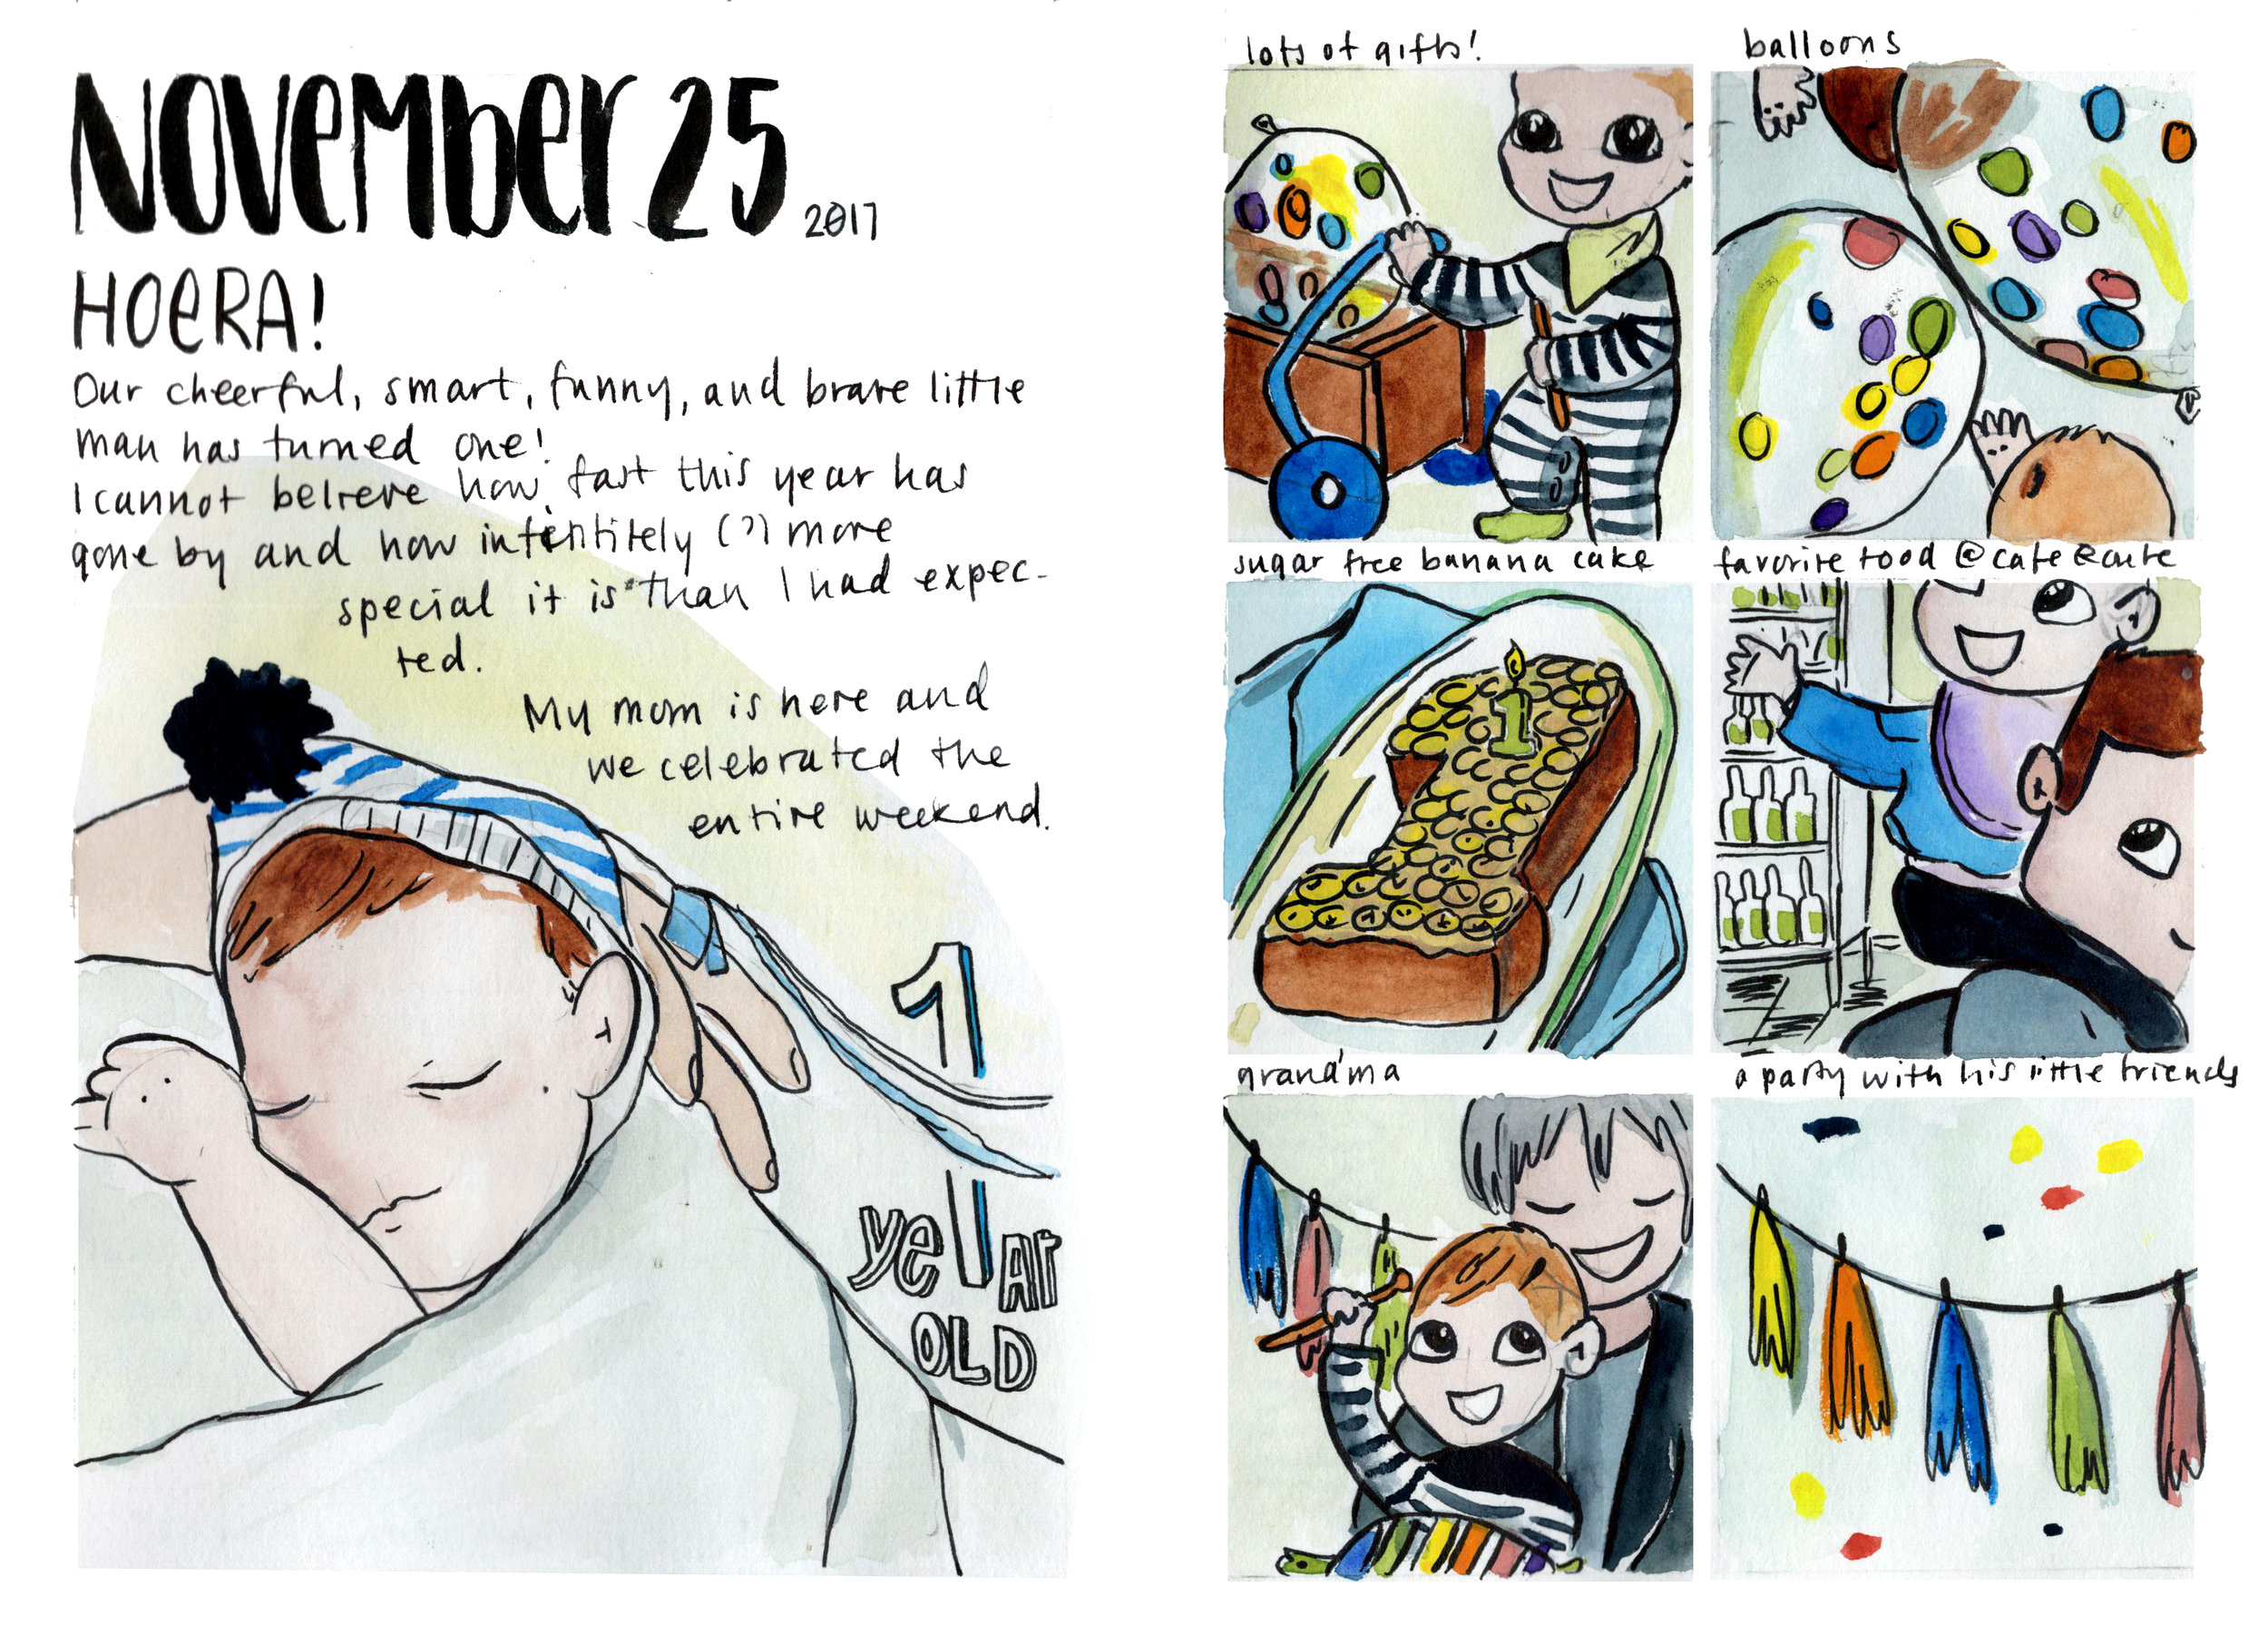 NOVEMber 25 2017
HOERA!
Our cheerful, smart, funny, and brave little
man has turned one!
I cannot believe how fast this year has
gone by and how infentitely (?) more
special it is than I had expec-
ted.
My mom is here and
we celebrated the
entire weekend.
1
yeAr
OLD
lots of gifts!
balloons
sugar free banana cake
1
favorite food @ cafe
grandma
a party with his little friends